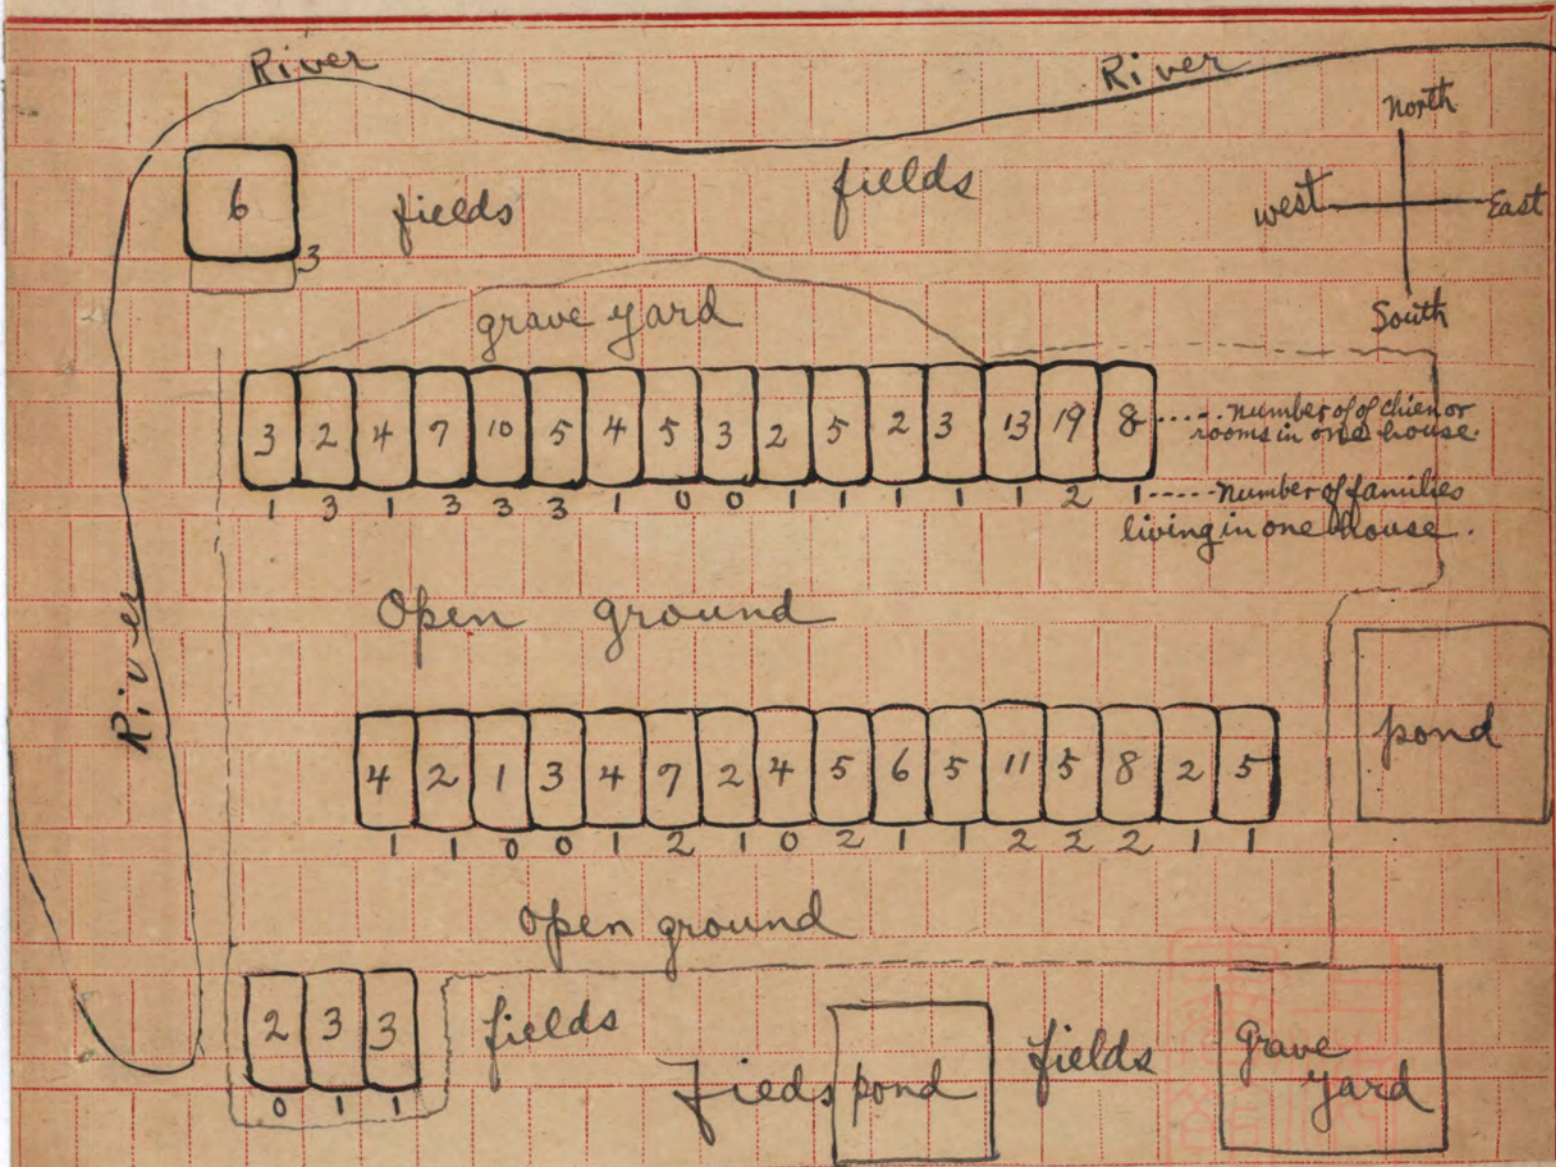 River
River
North
west
East
South
6
fields
fields
3
grave yard
3 2 4 7 10 5 4 5 3 2 5 2 3 13 19 8
..... number of of chien or
rooms in one house.
1 3 1 3 3 3 1 0 0 1 1 1 1 1 2 1
----- number of families
living in one house.
Open ground
River
pond
4 2 1 3 4 7 2 4 5 6 5 11 5 8 2 5
1 1 0 0 1 2 1 0 2 1 1 2 2 2 1 1
Open ground
2 3 3
fields
Fieds
pond
fields
Grave
yard
0 1 1